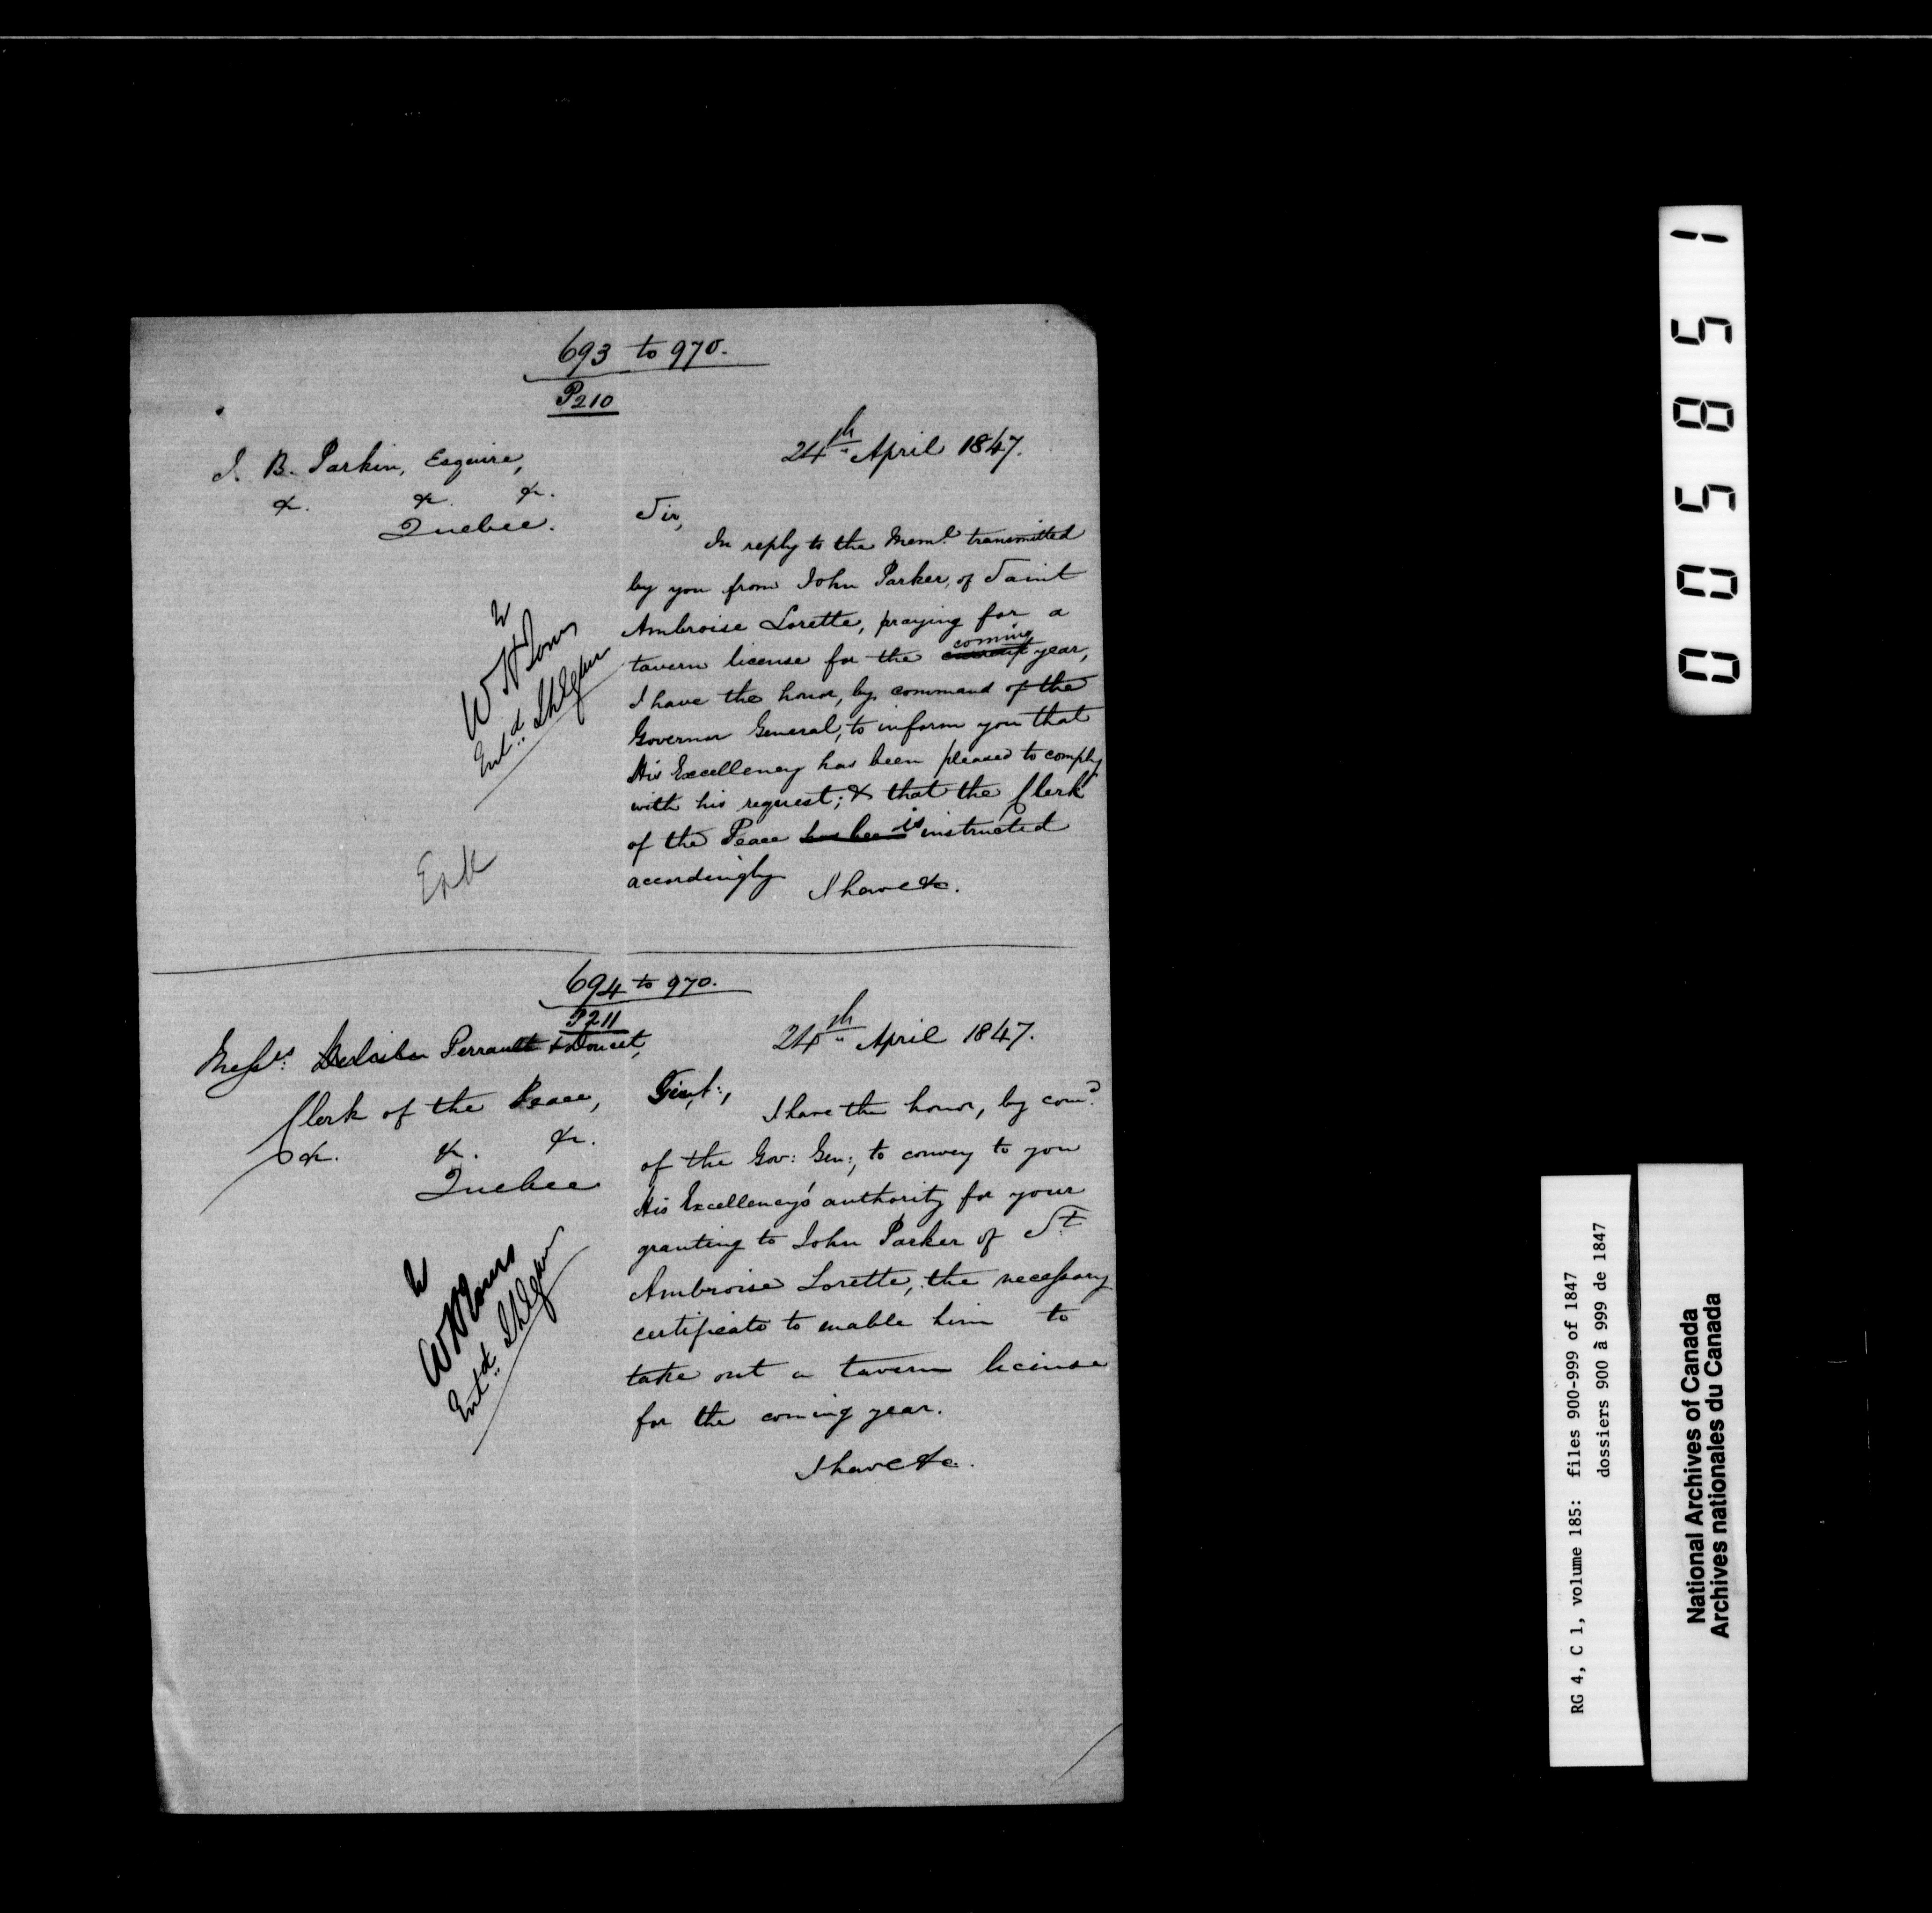 693 to 970.
P210
24th April 1847.
J. B. Parkin, Esquire,
&. &. &.
Quebec.
Sir,
In reply to the Meml. transmitted
by you from John Parker, of Saint
Ambroise Lorette, praying for a
coming
tavern license for the current year,
I have the honor, by command of the
Governor General, to inform you that
His Excellency has been pleased to comply
with his request; & that the Clerk
of the Peace has been is instructed
accordingly
I have &c.
Entd.
694 to 970.
P211
24th April 1847.
Messrs: Perrault & Doucet,
Clerk of the Peace,
&. &. &.
Quebec
Gent:,
I have the honor, by comd.
of the Gov: Gen:, to convey to you
His Excellency's authority for your
granting to John Parker of St.
Ambroise Lorette, the necessary
certificate to enable him to
take out a tavern license
for the coming year.
I have &c.
Entd.
005851
RG 4, C 1, volume 185: files 900-999 of 1847
dossiers 900 à 999 de 1847
National Archives of Canada
Archives nationales du Canada